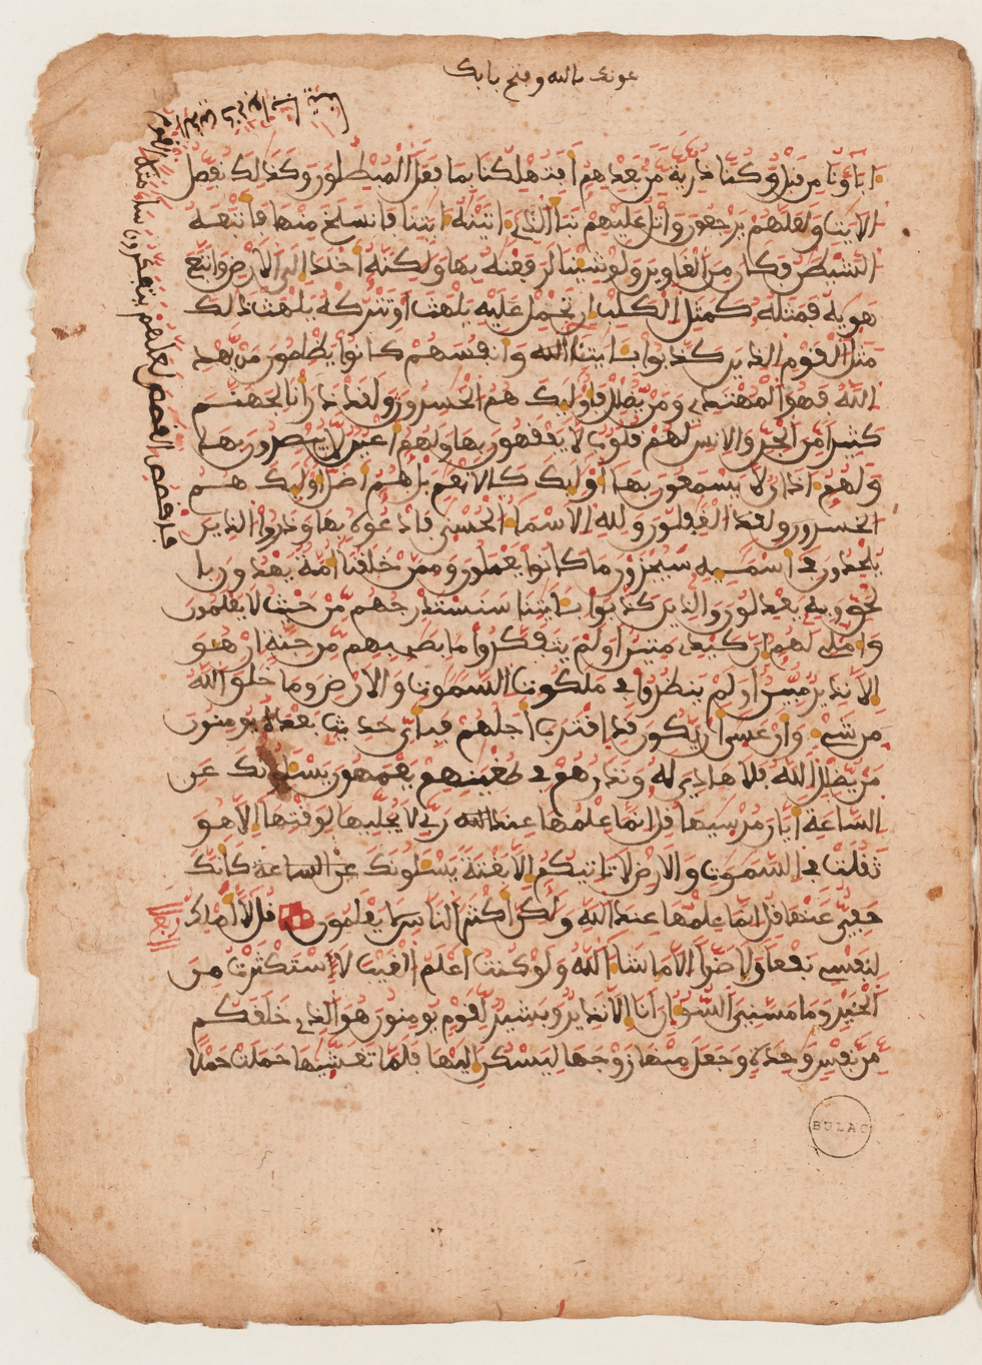 عونك بالله وفتح بابك
اباؤنا من قبل وكنا ذرية من بعدهم افتهلكنا بما فعل المبطلون وكذلك نفصل
الايت ولعلهم يرجعون واتل عليهم نبا الذي اتينه ايتنا فانسلخ منها فاتبعه
الشيطن فكان من الغاوين ولو شينا لرفعنه بها ولكنه اخلد الى الارض واتبع
هويه فمثله كمثل الكلب ان تحمل عليه يلهث او تتركه يلهث ذلك
مثل القوم الذين كذبوا بايتنا الله وانفسهم كانوا يظلمون من يهد
الله فهو المهتدي ومن يضلل فاوليك هم الخسرون ولقد ذرانا لجهنم
كثيرا من الجن والانس لهم قلوب لا يفقهون بها ولهم اعين لا يبصرون بها
ولهم اذان لا يسمعون بها اوليك كالانعم بل هم اضل اوليك هم
الخسرون ولقد الغفلون ولله الاسما الحسنى فادعوه بها وذروا الذين
يلحدون في اسميه سيجزون ما كانوا يعملون وممن خلقنا امة يهدون با
لحق وبه يعدلون والذين كذبوا بايتنا سنستدرجهم من حيث لا يعلمون
واملي لهم ان كيدي متين اولم يتفكروا ما بصحبهم من جنة ان هو
الا نذير مبين اولم ينظروا في ملكوت السموت والارض وما خلق الله
من شيء وان عسى ان يكون قد اقترب اجلهم فباي حديث بعده يومنون
من يضلل الله فلا هادي له ونذرهم في طغينهم يعمهون يسلونك عن
الساعة ايان مرسيها قل انما علمها عند الله ربي لا يجليها لوقتها الا هو
ثقلت في السموت والارض لا تاتيكم الا بغتة يسلونك عن الساعة كانك
حفي عنها قل انما علمها عند الله ولكن اكثر الناس لا يعلمون قل لا املك
لنفسي نفعا ولا ضرا الا ما شا الله ولو كنت اعلم الغيب لا ستكثرت من
الخير وما مسني السوء ان انا الا نذير وبشير لقوم يومنون هو الذي خلقكم
من نفس وحدة وجعل منها زوجها ليسكن اليها فلما تغشيها حملت حملا
فاقصص القصص لعلهم يتفكرون سا مثلا القوم
BULAC